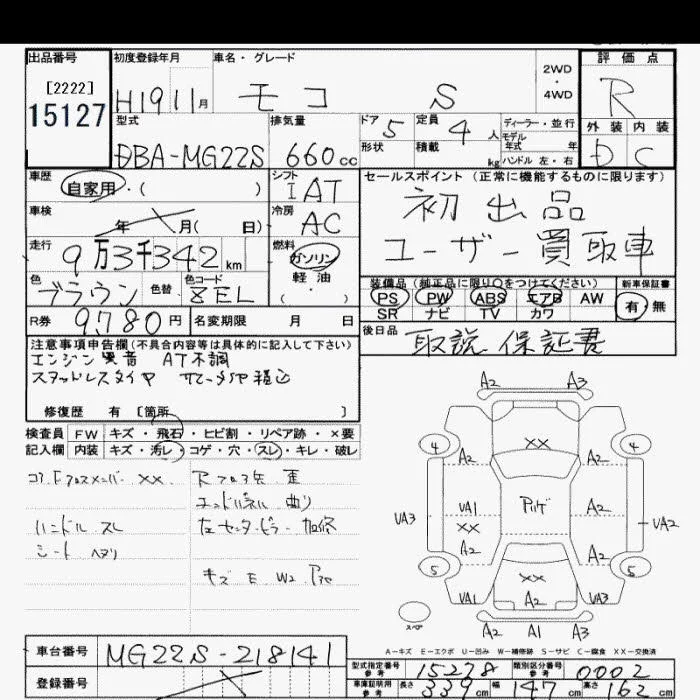 出品番号
[2222]
15127
初度登録年月
H19 11月
車名・グレード
モコ S
2WD
・
4WD
評価点
R
外装 内装
D C
型式
DBA-MG22S
排気量
660cc
ドア 5
定員 4人
形状
積載 kg
ディーラー・並行
モデル
年式 年
ハンドル 左・右
車歴
自家用・( )
シフト
IAT
車検
年 月( 日)
冷房
AC
走行
9万3千342km
燃料
ガソリン
軽・油
( ・ )
色
ブラウン
色替
色コード
Z8EL
R券 9,780円
名変期限 月 日
セールスポイント (正常に機能するものに限ります)
初出品
ユーザー買取車
装備品(純正品に限り○をつけてください)
PS PW ABS エアB AW
SR ナビ TV カワ
新車保証書
有・無
後日品
取説、保証書
注意事項申告欄(不具合内容等は具体的に記入して下さい)
エンジン異音 AT不調
スタッドレスタイヤ
修復歴 有 [箇所 ]
検査員 FW キズ・飛石・ヒビ割・リペア跡・×要
記入欄 内装 キズ・汚レ・コゲ・穴・スレ・キレ・破レ
コアF クロスメンバー XX
ハンドル スレ
シート ヘタリ
Rフロア 歪
エンドパネル 曲り
左センターピラー 加修
キズ E W2
A2 A3
XX
4 A2 A2 4
VA3 VA1 A2 VA2
XX
A2 A2
5 XX 5
VA1 A2 VA3
スペア
A2 A1 A3
A-キズ E-エクボ U-凹み W-補修跡 S-サビ C-腐食 XX-交換済
車台番号
MG22S-218141
登録番号
型式指定番号
参考
15278
類別区分番号
参考
0002
車庫証明用
参考
長さ 339cm 幅 147cm 高さ 162cm